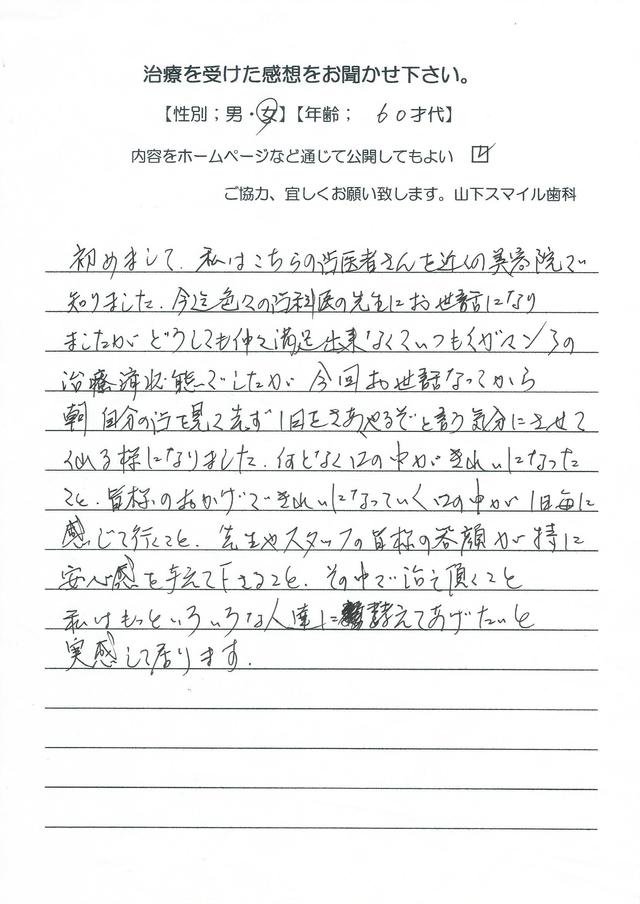 治療を受けた感想をお聞かせ下さい。
【性別；男・女】【年齢； 60才代】
内容をホームページなど通じて公開してもよい ☑
ご協力、宜しくお願い致します。山下スマイル歯科
初めまして、私はこちらの歯医者さんを近くの美容院で
知りました。今迄色々の歯科医の先生にお世話になり
ましたがどうしても仲々満足出来なくていつもガマンの
治療症状態でしたが 今回お世話なってから
朝 自分の歯を見て先ず1日をさあやるぞと言う気分にさせて
くれる様になりました。何となく口の中がきれいになった
こと、皆様のおかげできれいになっていく口の中が1日毎に
感じて行くこと、先生やスタッフの皆様の笑顔が特に
安心感を与えて下さること、その中で治して頂くこと
私はもっといろいろな人達に教えてあげたいと
実感して居ります。